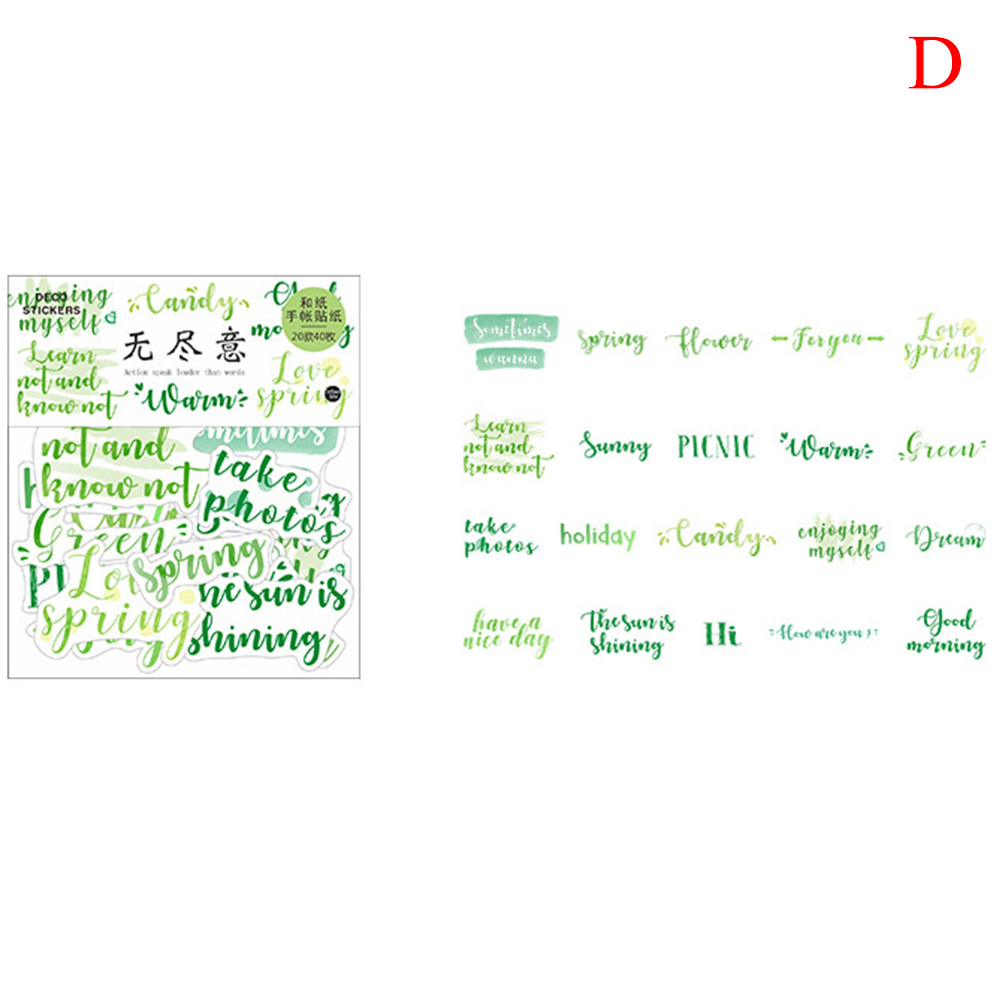 D
DECO
STICKERS
enjoying
myself
Candy
和纸
手帐贴纸
20款40枚
无尽意
Action speak louder than words
Learn
not and
know not
Warm
Love
spring
not and
know not
take
photos
Green
Love
spring
spring
the sun is
shining
Sometimes
wanna
spring
flower
For you
Love
spring
Learn
not and
know not
Sunny
PICNIC
Warm
Green
take
photos
holiday
Candy
enjoying
myself
Dream
have a
nice day
The sun is
shining
Hi
How are you?
Good
morning